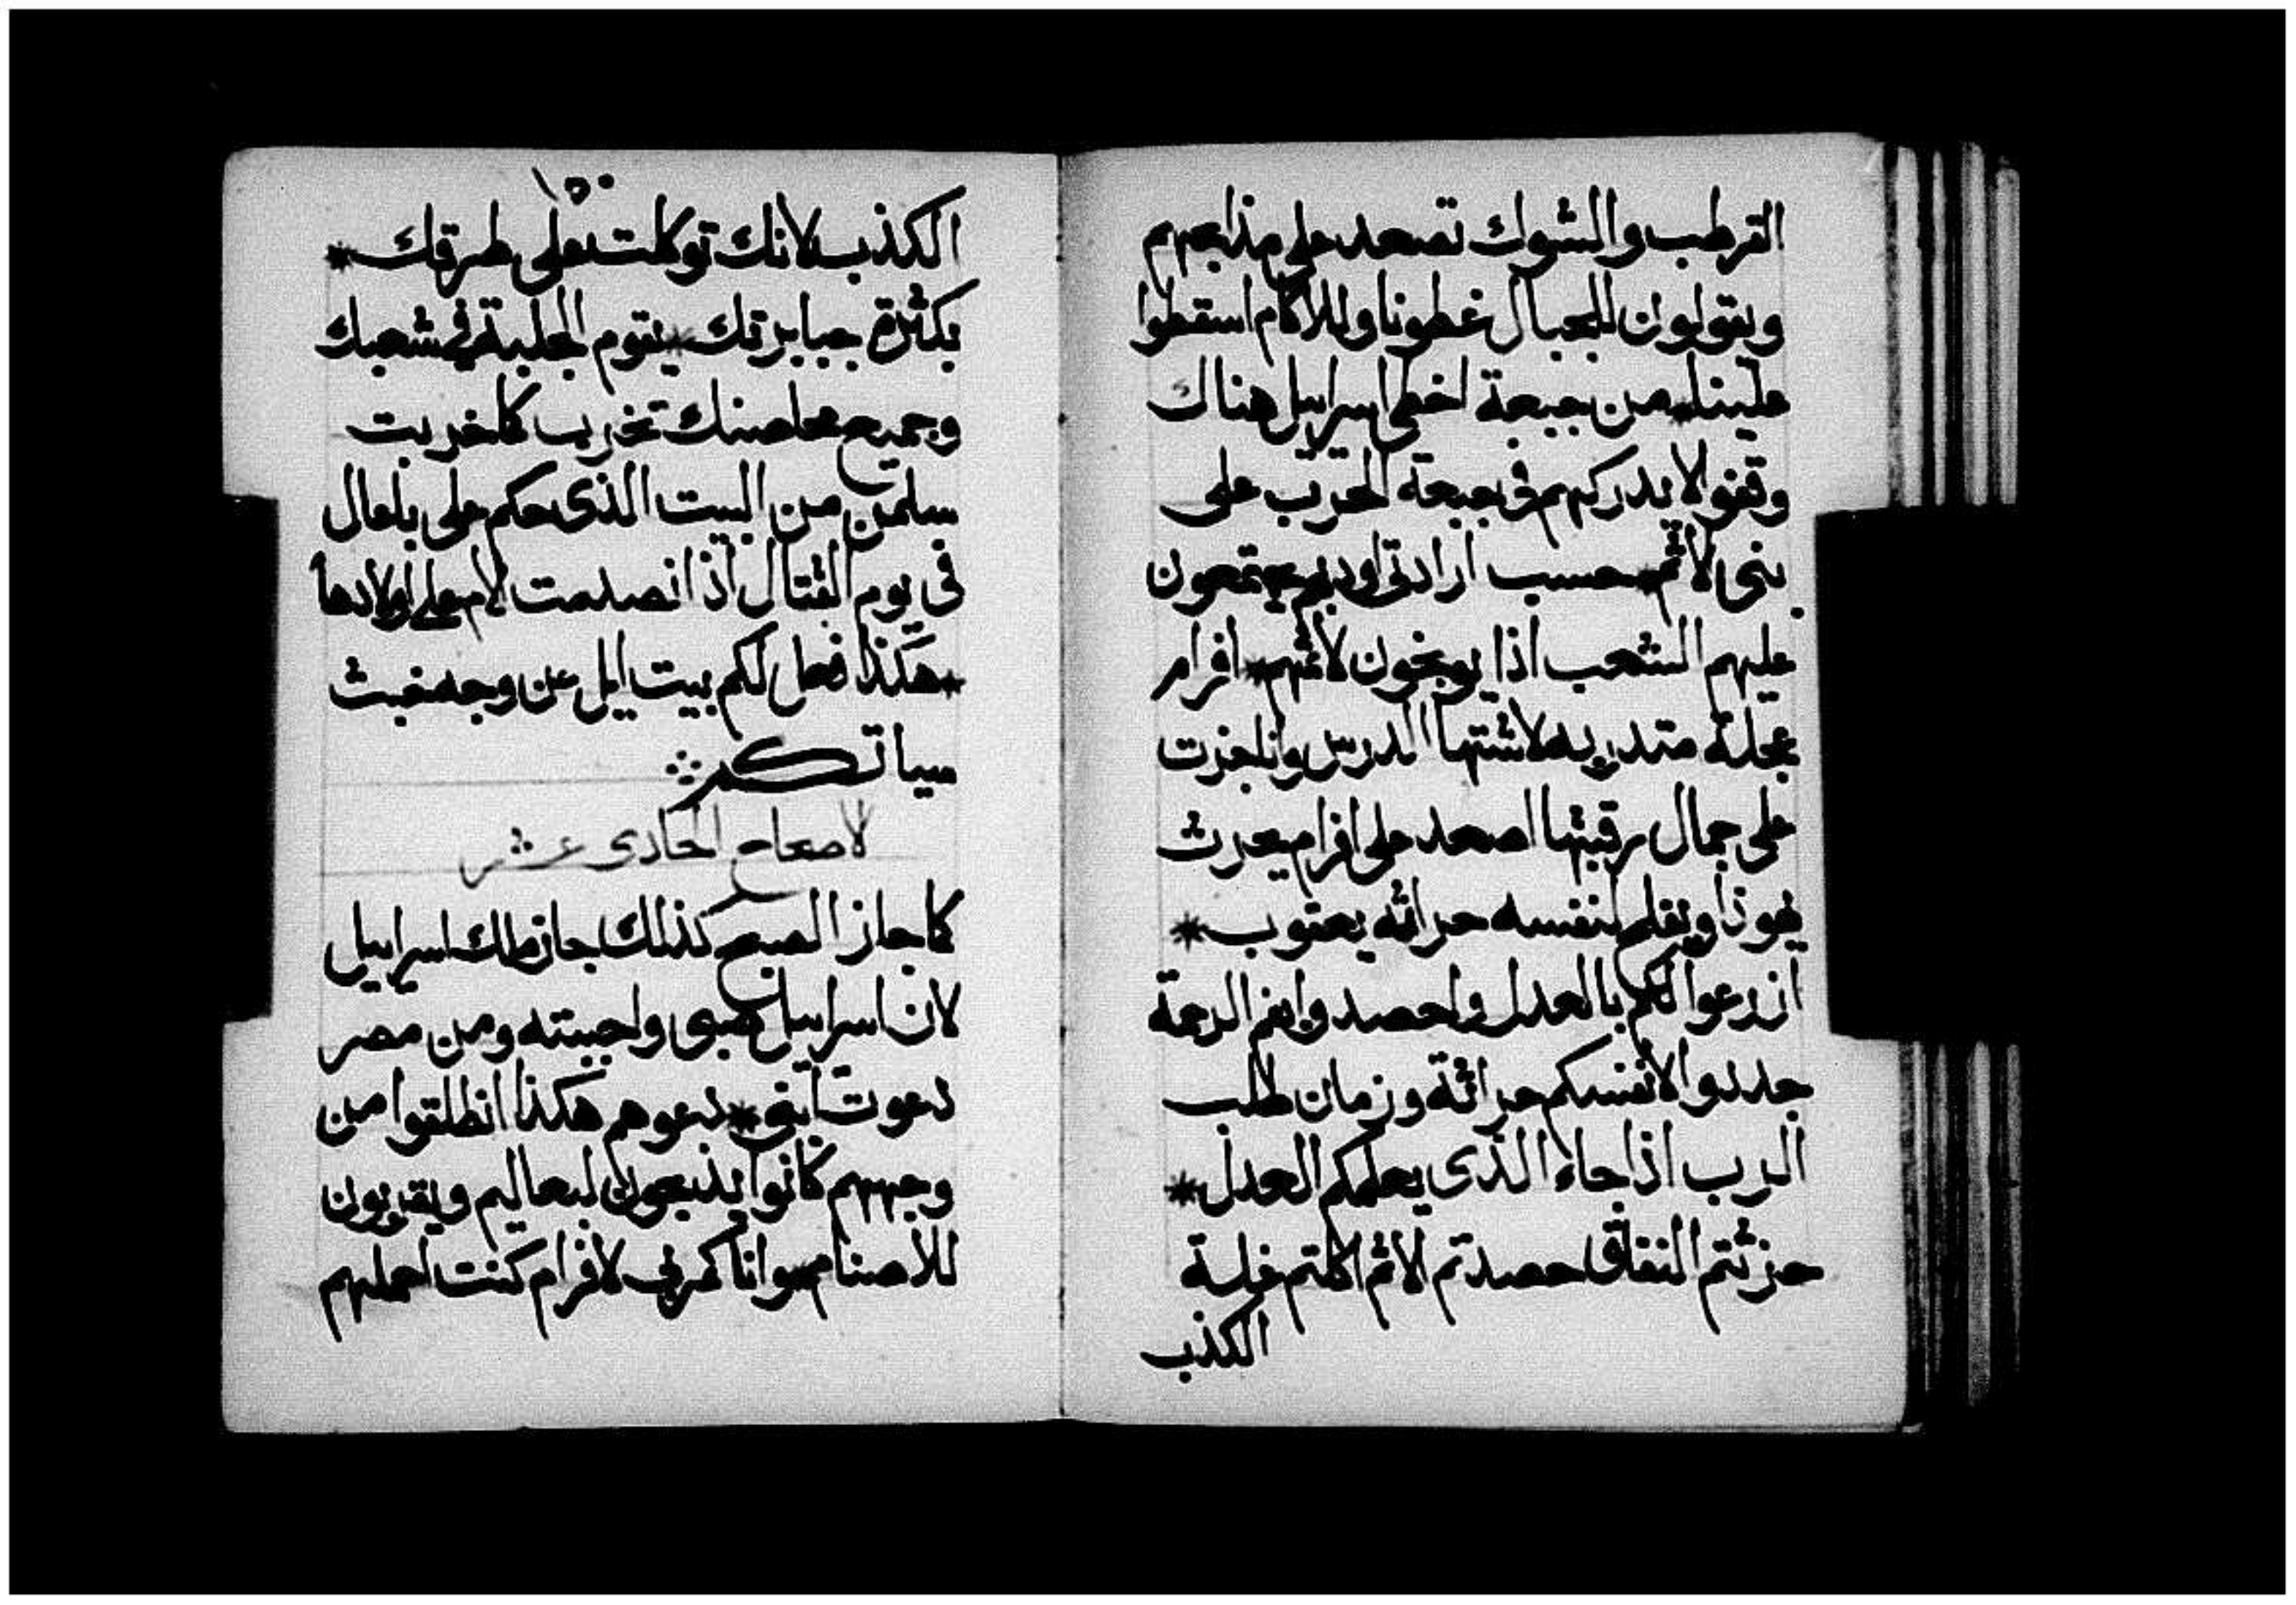 القرطب والشوك تصعد على مذابحهم
ويقولون للجبال غطونا وللاكام اسقطوا
علينا * من جبعة اخطى اسراييل هناك
وقفوا لا يدركهم في جبعة الحرب على
بنى الاثم * حسب ارادتى اودبهم يجتمعون
عليهم الشعب اذا يوبخون لاثمهم * افرام
عجلة متدربه لاشتها الدريس وانا جزت
على جمال رقبتها اصعد على افرام يحرث
يهوذا ويفلح لنفسه حراثه يعقوب *
ازرعوا لكم بالعدل واحصدوا بفم الرحمة
جددوا لانفسكم حراثة وزمان طلب
الرب اذا جاء الذى يعلمكم العدل *
حرثتم النفاق حصدتم الاثم اكلتم غلة
الكذب
الكذب لانك توكلت على طرقك *
بكثرة جبابرتك * يقوم الجلبة في شعبك
وجميع محاصنك تخرب كما خربت
سلمن من البيت الذى حكم على بلعال
فى يوم القتال اذ انصدمت الام على اولادها
* هكذا فعل لكم بيت ايل عن وجه خبث
سياتكم
الاصحاح الحادى عشر
كما جاز الصبح كذلك جاز ملك اسراييل
لان اسراييل صبى واحببته ومن مصر
دعوت ابنى * دعوهم هكذا انطلقوا من
وجههم كانوا يذبحون لبعاليم ويقربون
للاصنام * وانا كمربي لافرام كنت احملهم